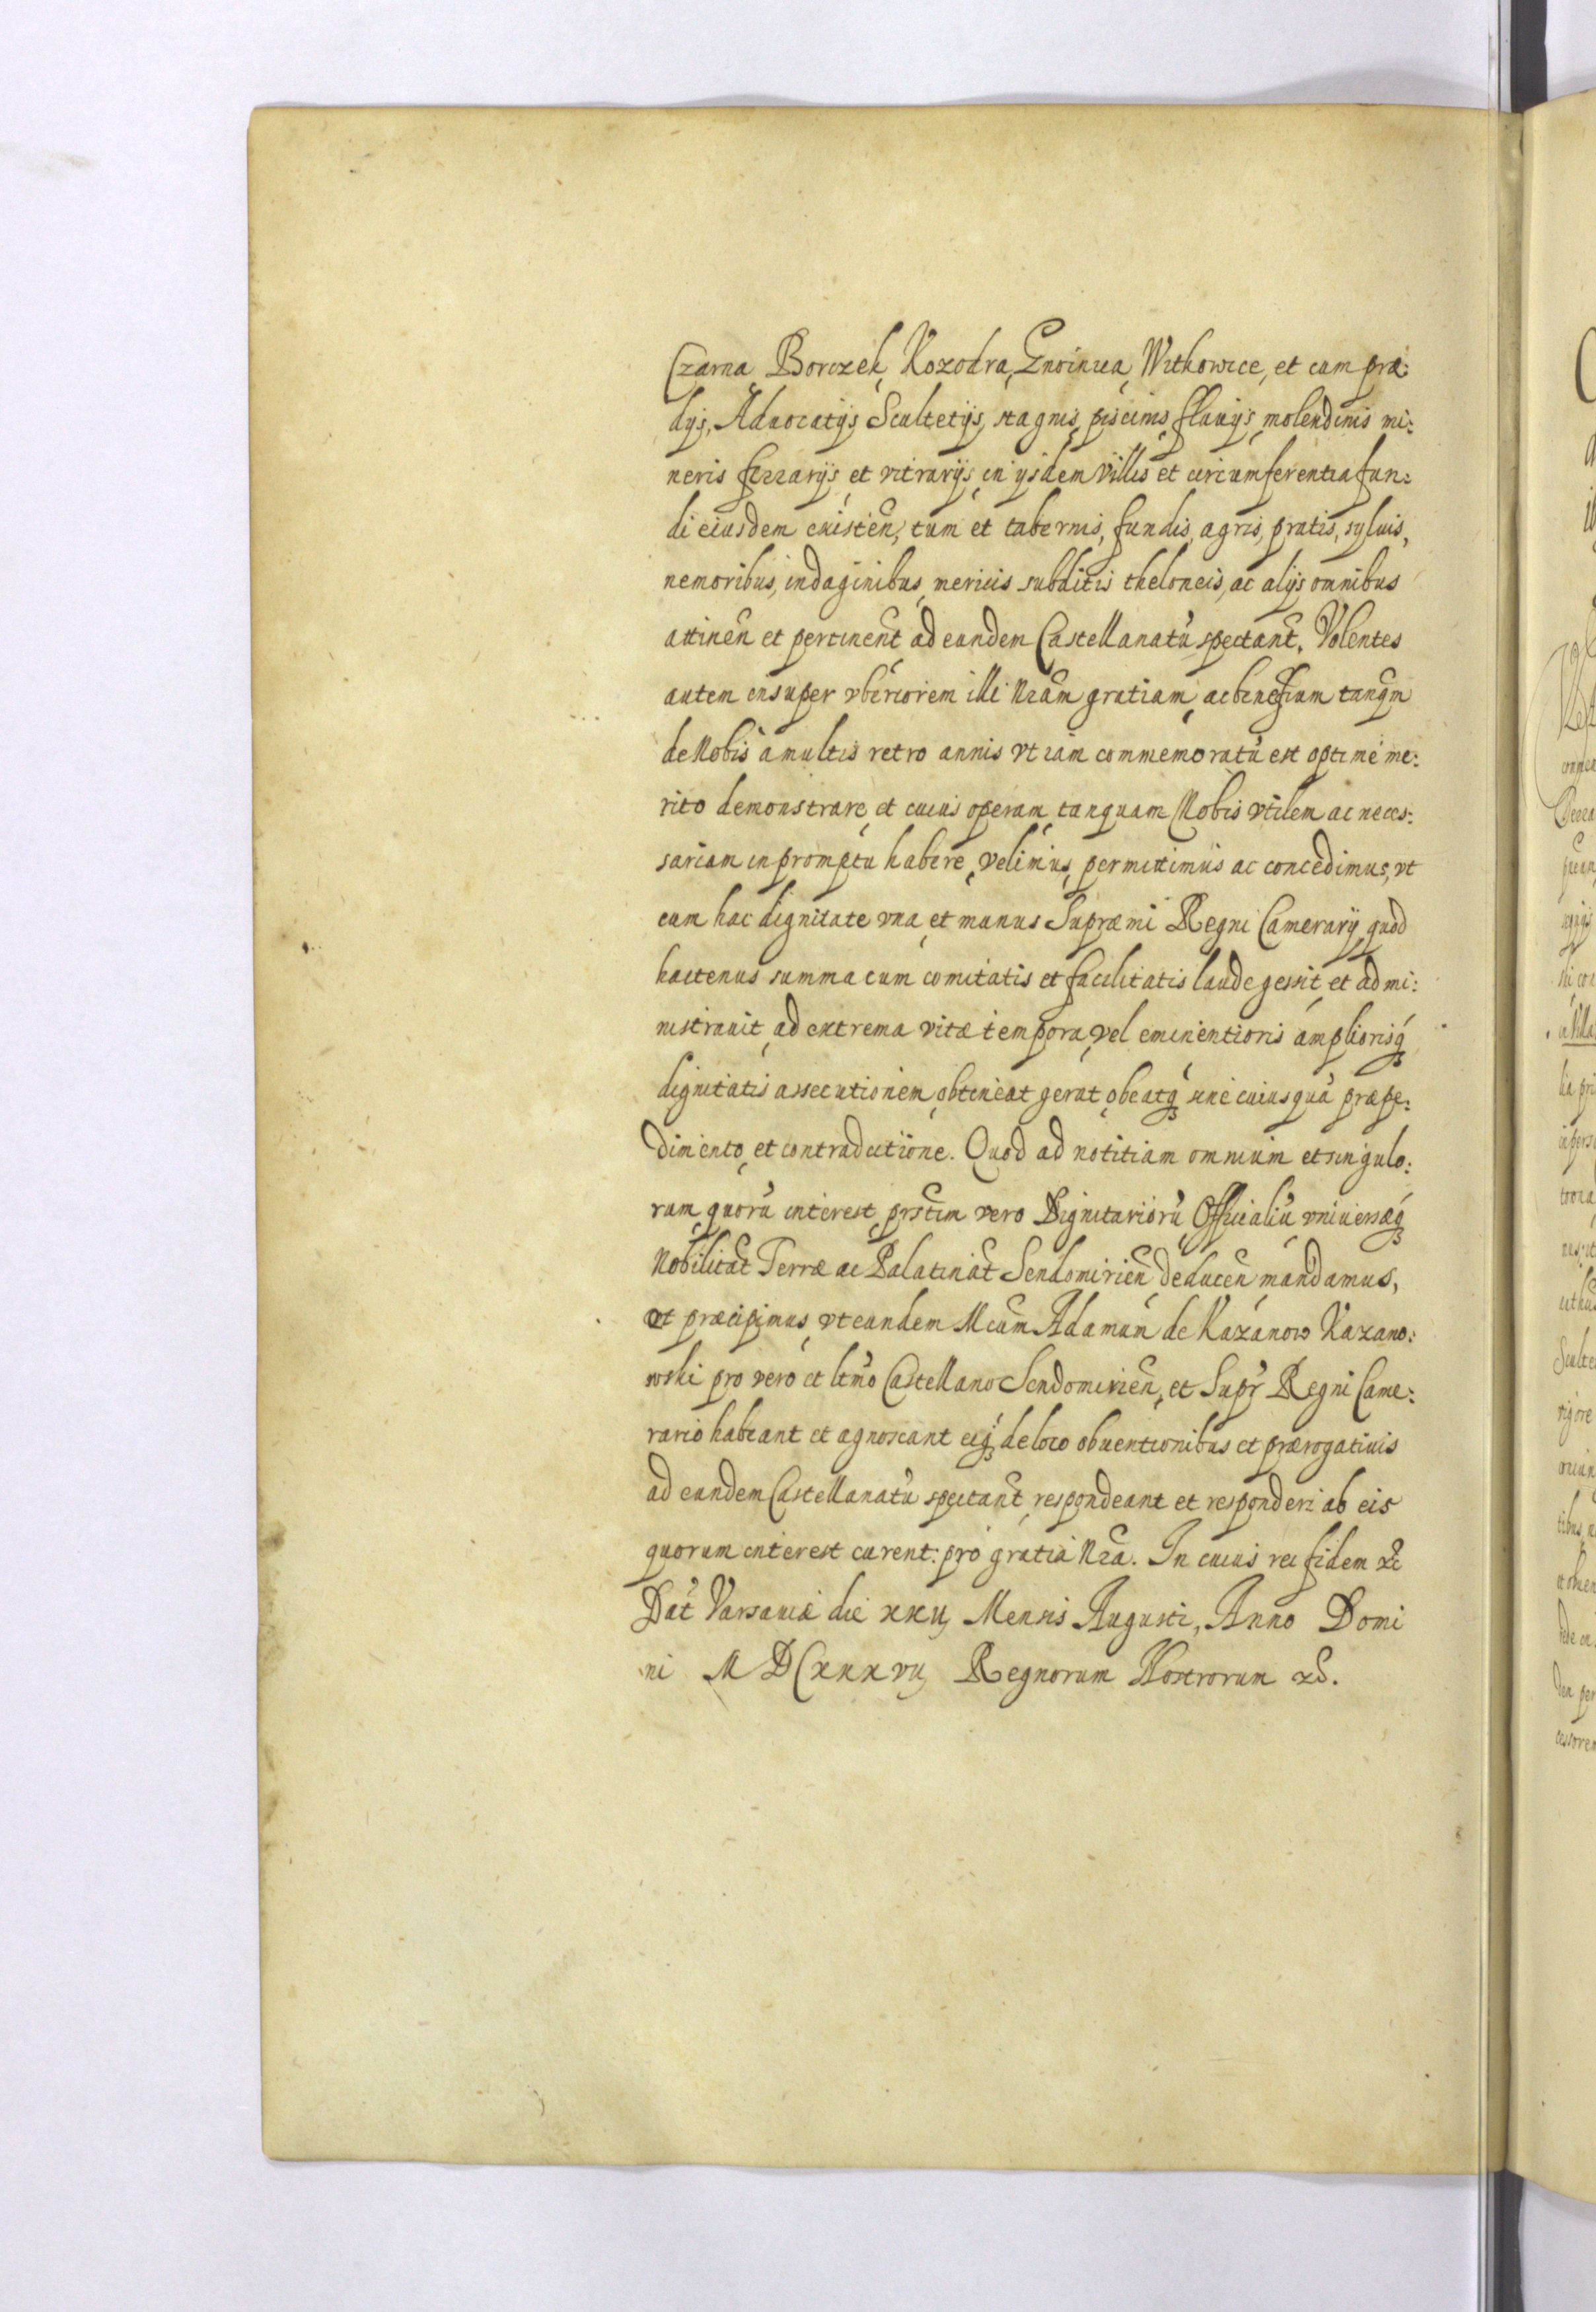 Czarna, Borczek, Kozodra, Gnoinica, Witkowice, et cum præ:
dÿs, Aduocatÿs, Scultetÿs, stagnis, piscinis, fluuÿs, molendinis mi:
neris ferrarÿs, et vitrarÿs, in ÿsdem villis et circumferentia fun:
di eiusdem existeñ, tum et tabernis, fundis, agris, pratis, syluis,
nemoribus, indaginibus, mericis subditis theloneis, ac alÿs omnibus
attineñ et pertineñt ad eundem Castellanatũ spectañt. Volentes
autem insuper vberiorem illi Nrãm gratiam, ac benefium tanq̃m
de Nobis à multis retro annis vt iam commemoratũ est optimè me:
rito demonstrare, et cuius operam, tanquam Nobis vtilem ac neces:
sariam in promptu habere, velimus, permittimus ac concedimus, vt
cum hac dignitate vna, et munus Supræmi Regni Camerarÿ, quod
hactenus summa cum comitatis et facilitatis laude gessit, et admi:
nistrauit, ad extrema vitæ tempora, vel eminentioris ampliorisq́
dignitatis assecutionem, obtineat gerat, obeatq́ sine cuiusquã præpe:
dimento, et contradictione. Quod ad notitiam omnium et singulo:
rum, quorũ interest, prs̃tim vero Dignitariorũ, Officialiũ, vniuersæq́
Nobilitat̃ Terræ ac Palatinat̃ Sendomirieñ, deduceñ, mandamus,
et præcipimus, vt eundem Mcũm Adamum de Kazanow Kazano:
wski pro vero et ltm̃o Castellano Sendomirieñ, et Supr̃ Regni Came:
rario habeant et agnoscant eiq́ de loco obuentionibus et prærogatiuis
ad eundem Castellanatũ spectañt, respondeant et responderi ab eis
quorum interest curent: pro gratia Nrã. In cuius rei fidem &c̃
Dat̃ Varsauiæ die xxÿ Mensis Augusti, Anno Domi
ni MDCxxxvÿ Regnorum Nostrorum &c̃.